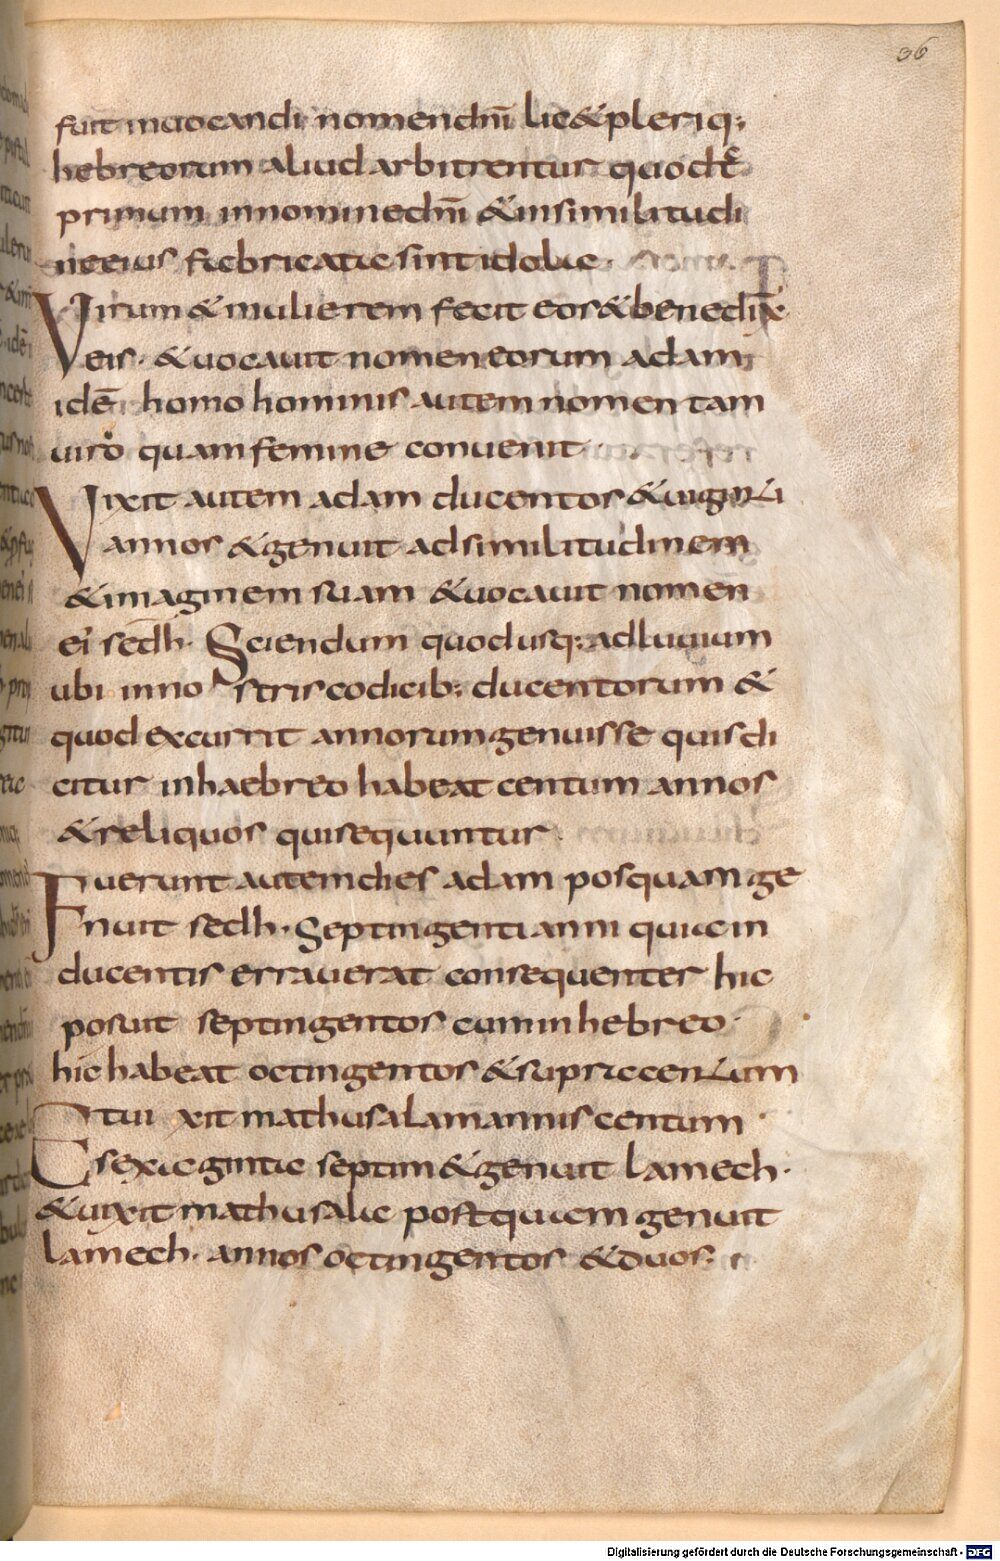 36
fuit inuocandi nomen dn̄i licet & pleriq;
hebreorum aliud arbitrentur quod tc̄
primum in nomine dn̄i & in similitudi
ne eius fabricata sint idola·
Virum & mulierem fecit eos & benedix̄
eis· & uocauit nomen eorum adam
idē homo hominis autem nomen tam
uiro quam femine conuenit·
Vixit autem adam ducentos & uiginti
annos & genuit ad similitudinem
& imaginem suam & uocauit nomen
ei sedh· Sciendum quod usq; ad luuium
ubi in nostris codicib; ducentorum &
quod excurrit annorum genuisse quis di
citur in haebreo habeat centum annos
& reliquos qui sequuntur·
Fuerunt autem dies adam posquam ge
nuit sedh· Septingenti anni quia in
ducentis errauerat consequenter hic
posuit septingentos cum in hebreo·
hic habeat octingentos & supra centum
Et uixit mathusalam annis centum
sexaginta septim & genuit lamech·
& uixit mathusala postquam genuit
lamech· annos octingentos & duos·
Digitalisierung gefördert durch die Deutsche Forschungsgemeinschaft - DFG